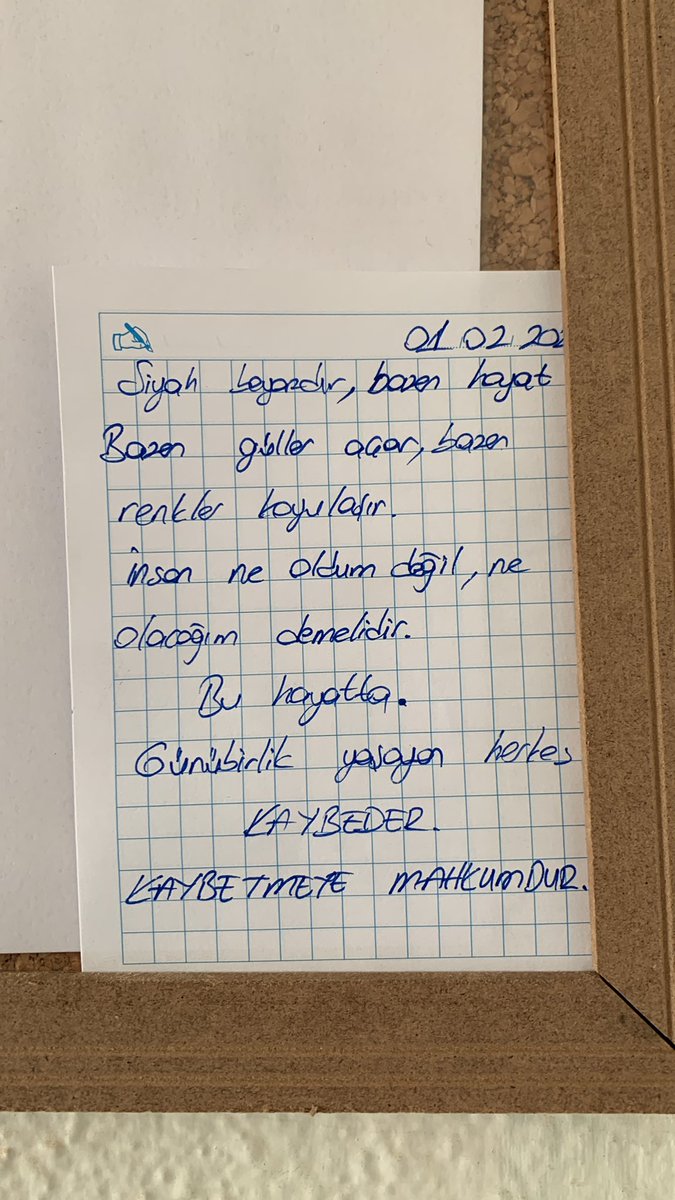 01.02.202
Siyah beyazdır, bazen hayat
Bazen güller açar, bazen
renkler koyulaşır.
insan ne oldum değil, ne
olacağım demelidir.
Bu hayatta.
Günübirlik yaşayan herkes
KAYBEDER.
KAYBETMEYE MAHKUMDUR.